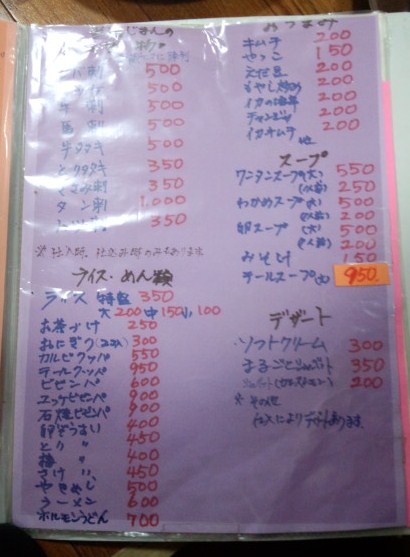 500
500
刺 500
馬刺 500
牛タタキ 500
とりタタキ 350
ささみ刺 350
タン刺 1,000
350
ライス・めん類
ライス 特盛 350
大200 中150 小100
お茶づけ 250
おにぎり(2ヶ) 300
カルビクッパ 550
テールクッパ 950
ビビンバ 600
ユッケビビンバ 900
石焼ビビンバ 900
卵ぞうすい 400
とり 〃 450
梅 〃 400
さけ 〃 450
やきめし 500
ラーメン 600
ホルモンうどん 700
おつまみ
キムチ 200
やっこ 150
えだ豆 200
もやし炒め 200
イカの塩辛 200
チャンジャ 200
イカキムチ 200
他
スープ
ワンタンスープ(大) 550
(小) 250
わかめスープ(大) 500
(小) 200
卵スープ(大) 500
(小) 200
みそ汁 150
テールスープ 950
デザート
ソフトクリーム 300
まるごとシャーベット 350
200
※ その他
仕入によりデザートあります